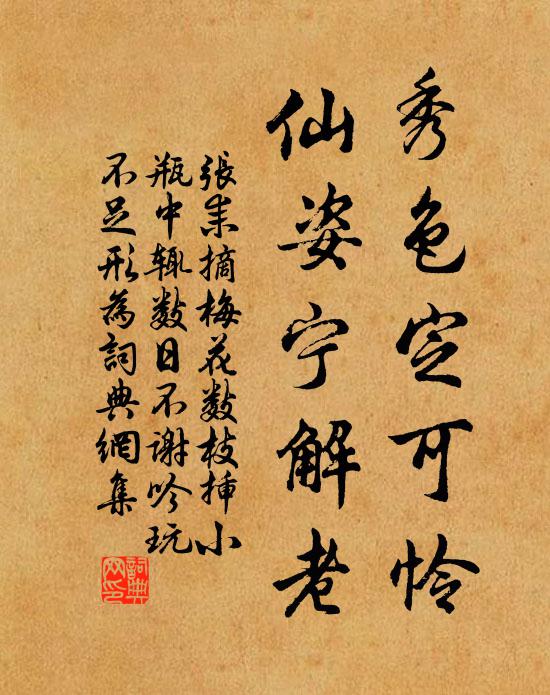 秀色定可怜
仙姿宁解老
張耒摘梅花数枝挿小
瓶中辄数日不謝吟玩
不足形為詞典網集
詞典网印